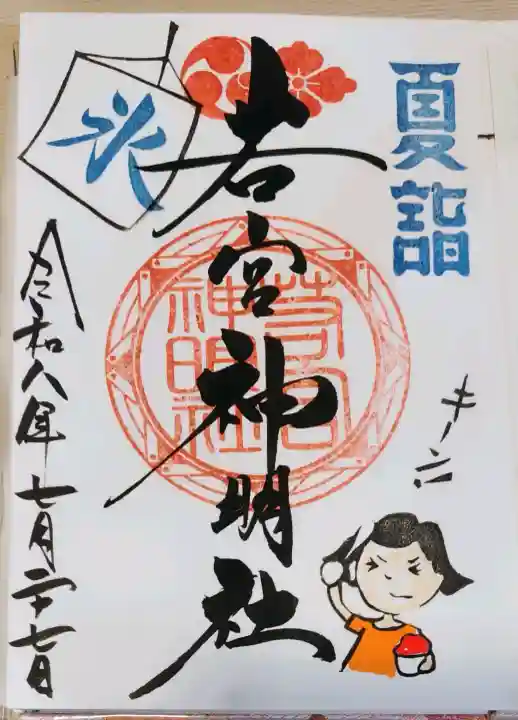 夏詣
キーン
若宮神明社
若宮
神明社
氷
令和八年七月二十七日